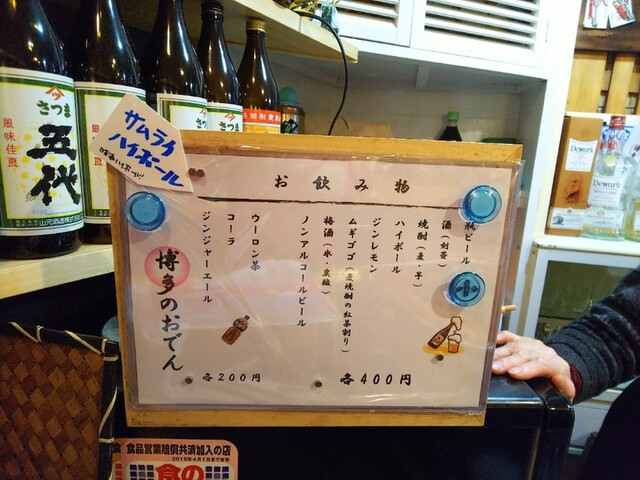 お飲み物
瓶ビール
小
酒(剣菱)
焼酎(麦・芋)
ハイボール
ジンレモン
ムギゴゴ(麦焼酎の紅茶割り)
梅酒(氷・炭酸)
ノンアルコールビール
各400円
ウーロン茶
コーラ
ジンジャーエール
各200円
博多のおでん
サムライ
ハイボール
さつま
五代
風味佳良
さつま
Dewar's
Dewar's
食品営業賠償共済加入の店
食の